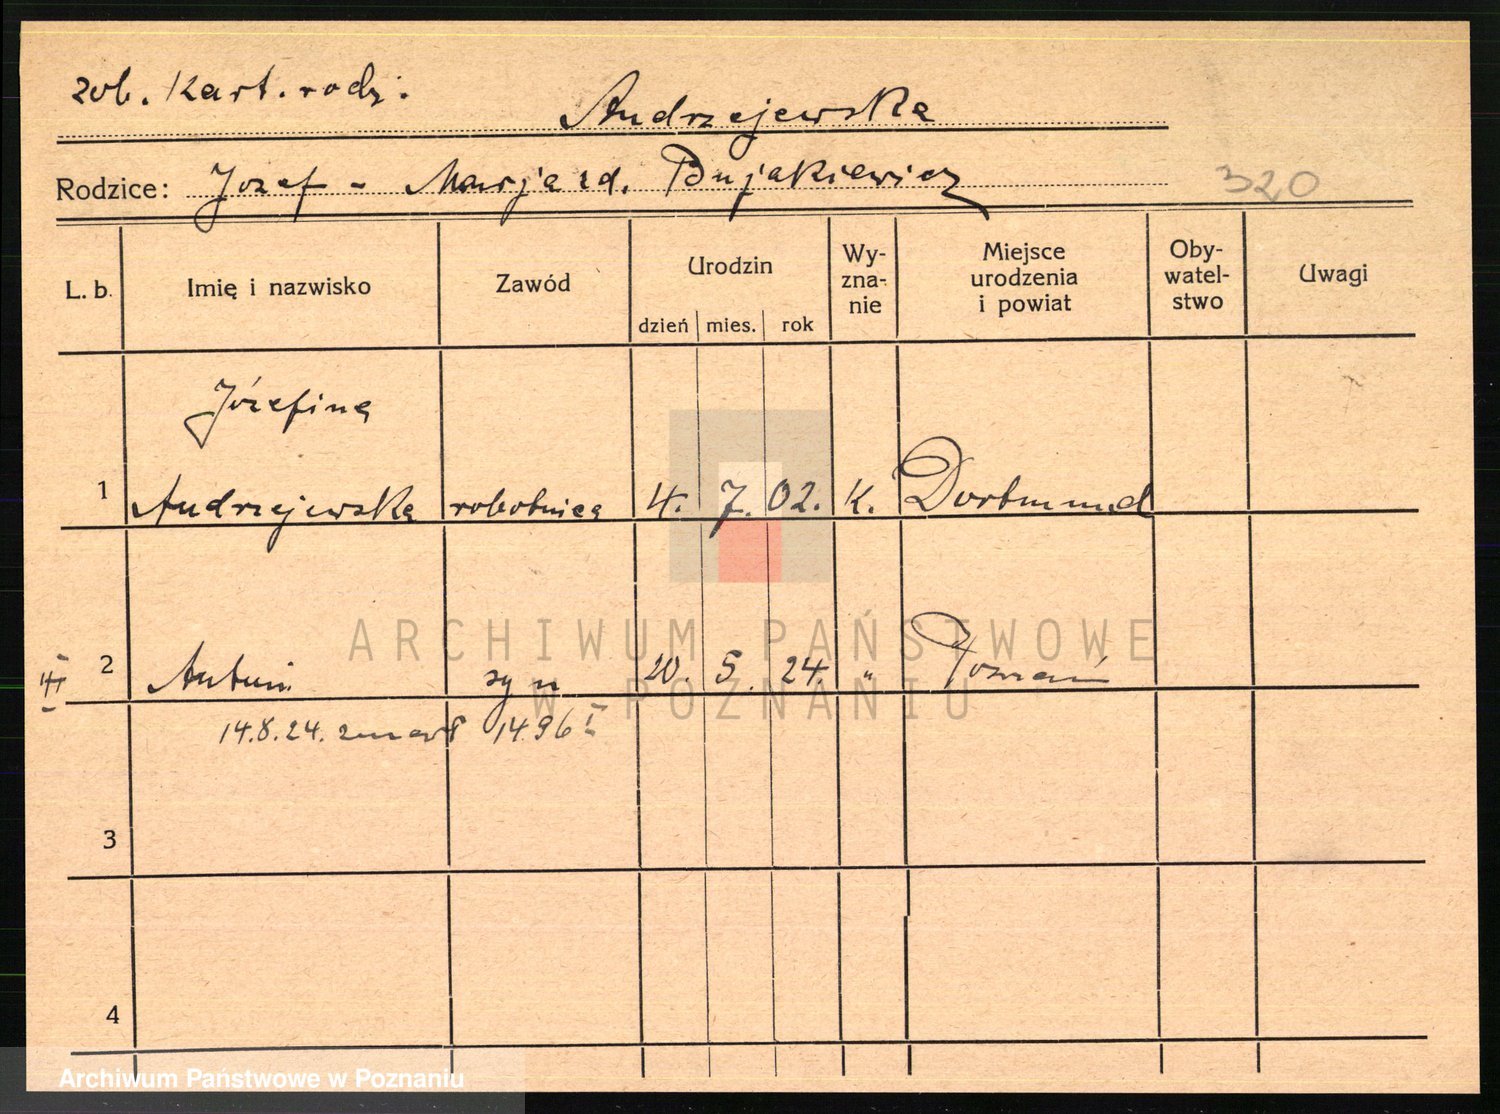 zob. Kart. rodz.
Andrzejewska
Rodzice: Józef - Marja zd. Bujakiewicz
320
L. b.
Imię i nazwisko
Zawód
Urodzin
dzień mies. rok
Wy-
zna-
nie
Miejsce
urodzenia
i powiat
Oby-
watel-
stwo
Uwagi
Józefina
1 Andrzejewska robotnica 4. 7. 02. k. Dortmund
ARCHIWUM PAŃSTWOWE
2 Antoni syn 20. 5. 24. " Poznań
W POZNANIU
14.8.24. zmarł 1496 I
3
4
Archiwum Państwowe w Poznaniu